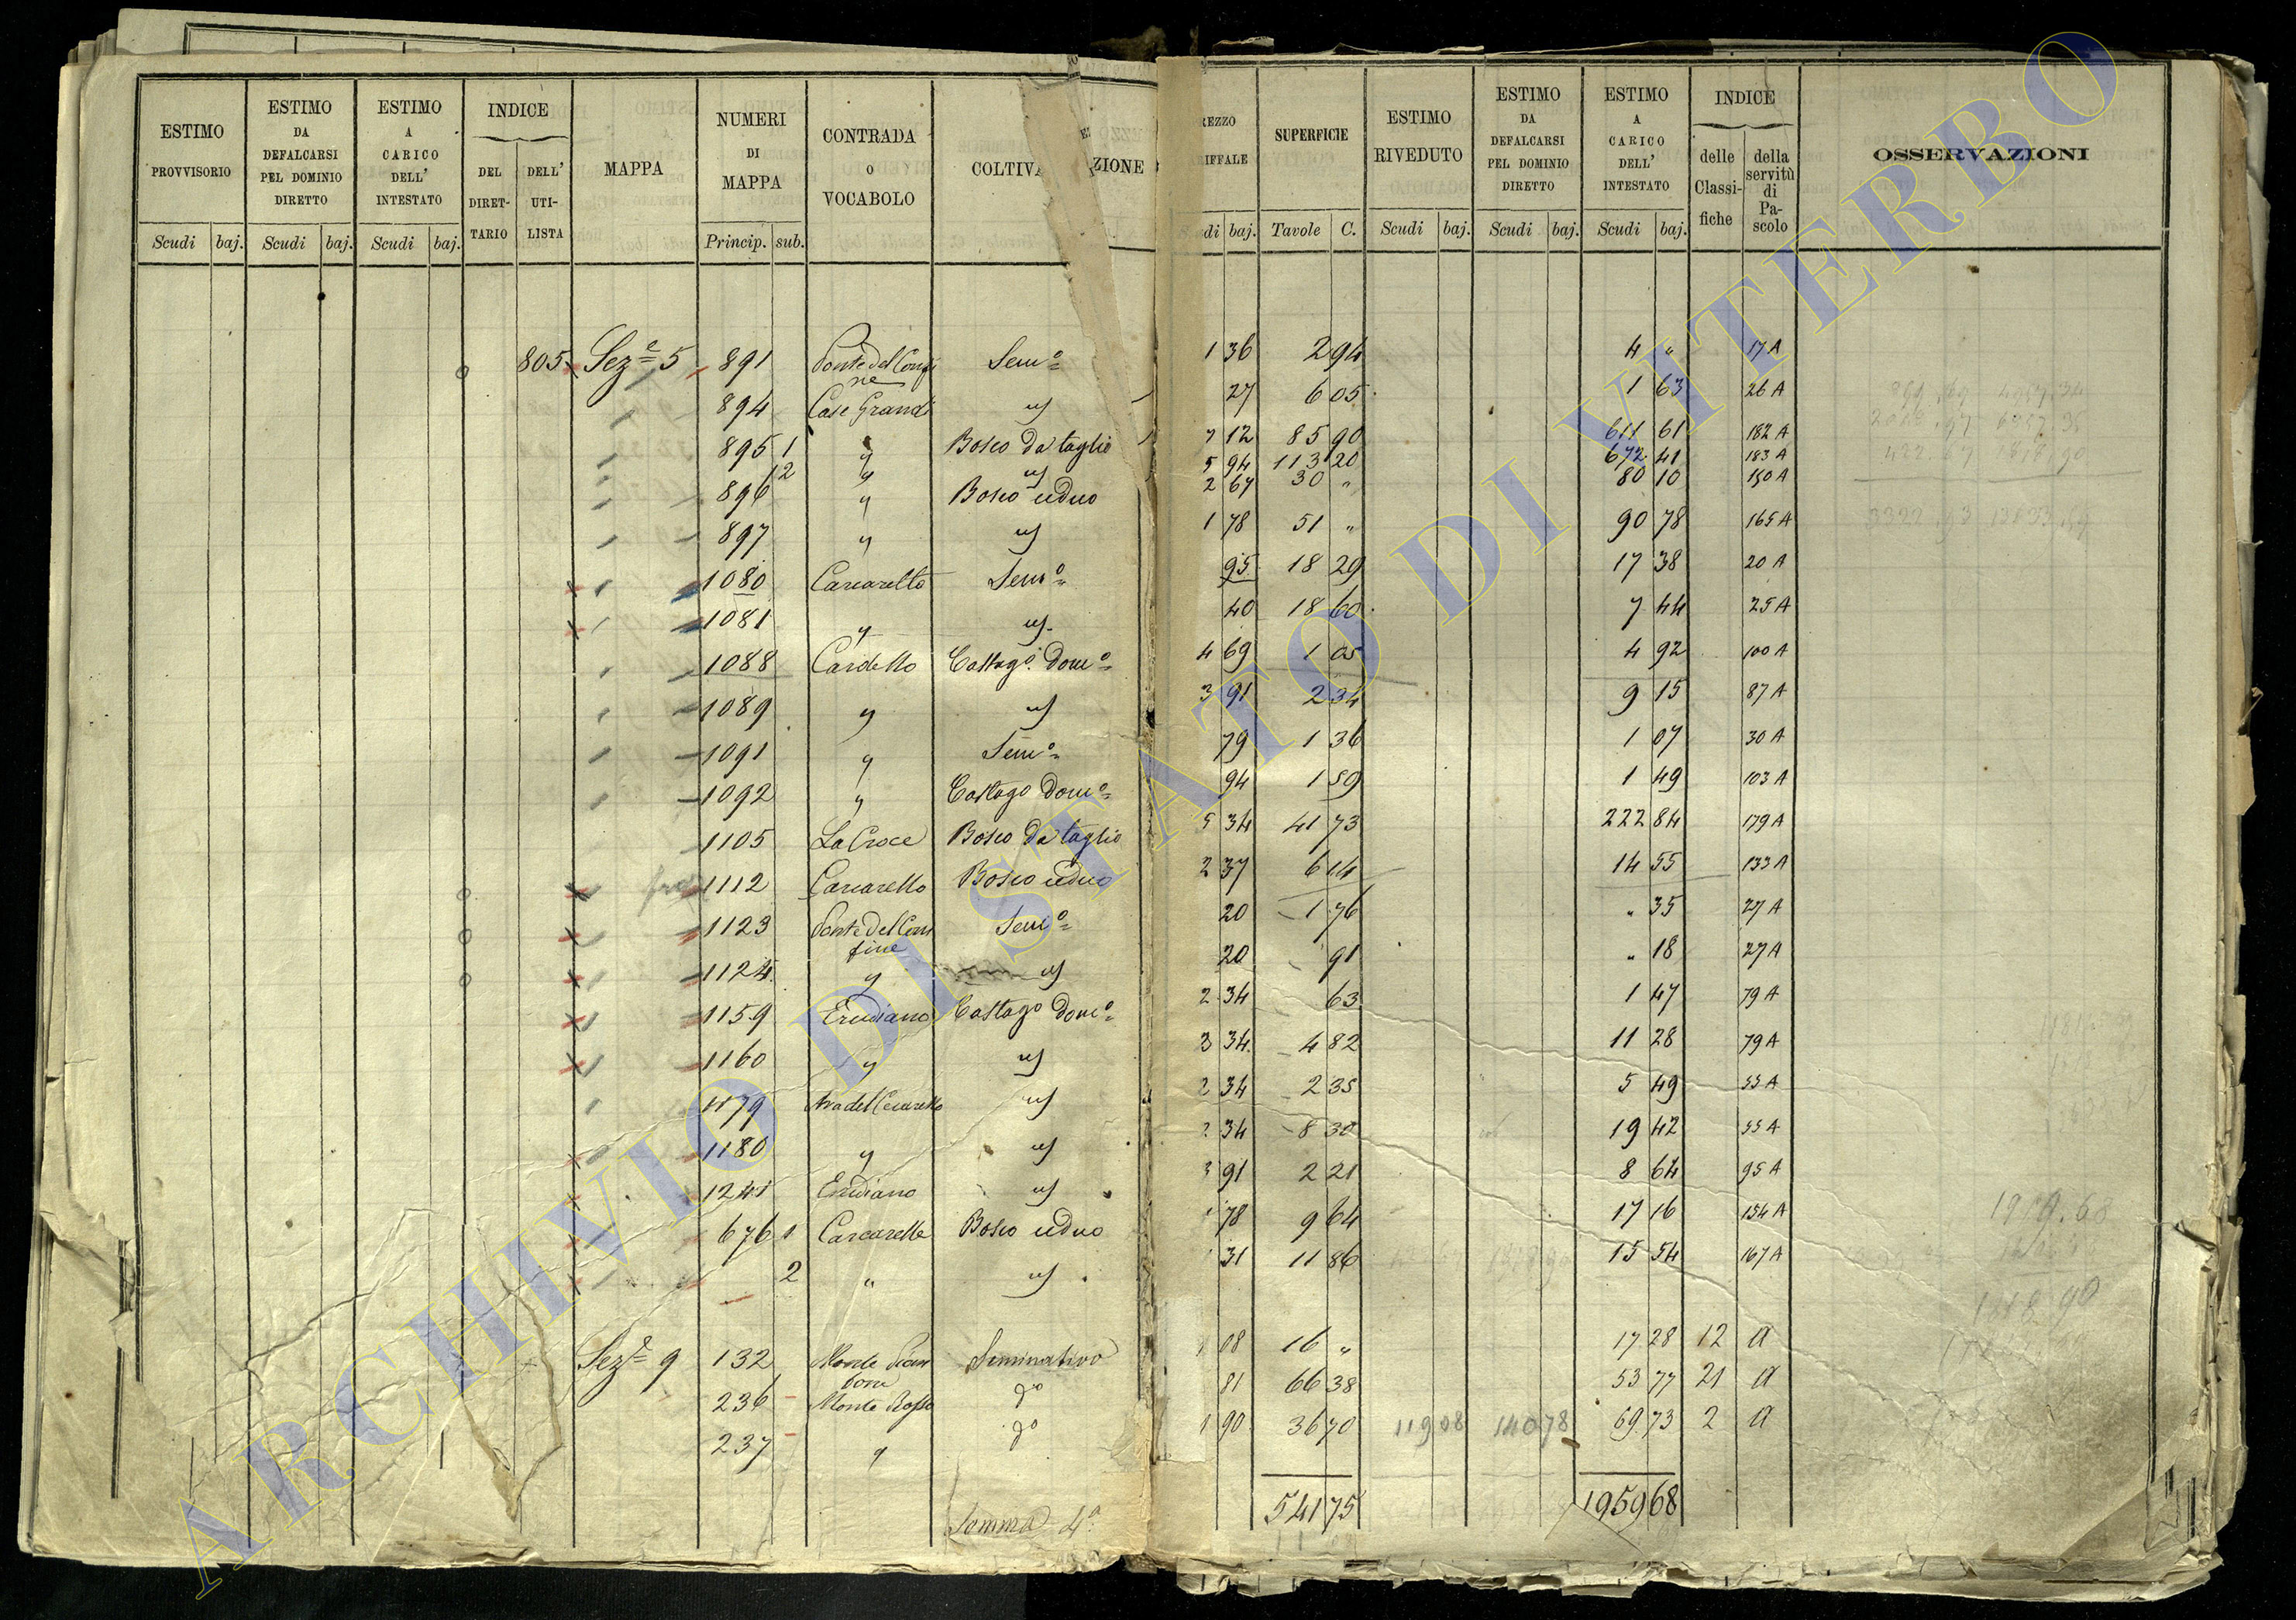 ESTIMO PROVVISORIO Scudi baj. | ESTIMO DA DEFALCARSI PEL DOMINIO DIRETTO Scudi baj. | ESTIMO A CARICO DELL' INTESTATO Scudi baj. | INDICE DEL DIRETTARIO DELL' UTILISTA | MAPPA | NUMERI DI MAPPA Princip. sub. | CONTRADA O VOCABOLO | COLTIVA ZIONE | REZZO RIFFALE di baj. | SUPERFICIE Tavole C. | ESTIMO RIVEDUTO Scudi baj. | ESTIMO DA DEFALCARSI PEL DOMINIO DIRETTO Scudi baj. | ESTIMO A CARICO DELL' INTESTATO Scudi baj. | INDICE delle Classifiche della servitù di Pascolo | OSSERVAZIONI
805 Sez.e 5 891 Ponte del Confine Sem.o 1 36 2 94 4 " 17 A
894 Case Grandi " 27 6 05 1 63 26 A
895 1 " Bosco da taglio 7 12 85 90 611 61 182 A
2 " " 5 94 113 20 672 41 183 A
896 " Bosco ceduo 2 67 30 " 80 10 150 A
897 " " 1 78 51 " 90 78 165 A
1080 Carcarello Sem.o 95 18 29 17 38 20 A
1081 " " 40 18 60 7 44 25 A
1088 Cardello Castag.o Dom.o 4 69 1 05 4 92 100 A
1089 " " 3 91 2 34 9 15 87 A
1091 " Sem.o 79 1 36 1 07 30 A
1092 " Castag.o Dom.o 94 1 59 1 49 103 A
1105 La Croce Bosco da taglio 5 34 41 73 222 84 179 A
1112 Carcarello Bosco ceduo 2 37 6 14 14 55 133 A
1123 Ponte del Confine Sem.o 20 1 76 " 35 27 A
1124 " " 20 91 " 18 27 A
1159 Erudiano Castag.o Dom.o 2 34 63 1 47 79 A
1160 " " 2 34 4 82 11 28 79 A
1179 " 2 34 2 35 5 49 55 A
1180 " " 2 34 8 30 19 42 55 A
1241 Erudiano " 3 91 2 21 8 64 95 A
676 1 Carcarello Bosco ceduo 1 78 9 64 17 16 154 A
2 " " 31 11 86 15 54 167 A
Sez.e 9 132 Monte Seminativo 1 08 16 " 17 28 12 A
236 Monte Rosso do 81 66 38 53 77 21 A
237 " do 1 90 36 70 119 08 140 78 69 73 2 A
Somma 4a 541 75 1959 68
1959.68
ARCHIVIO DI STATO DI VITERBO